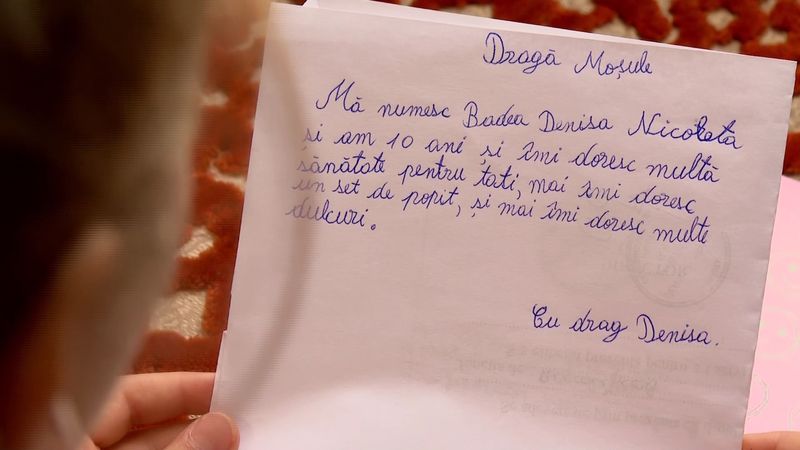 Dragă Moșule
Mă numesc Badea Denisa Nicoleta
și am 10 ani și îmi doresc multă
sănătate pentru tati, mai îmi doresc
un set de popit, și mai îmi doresc multe
dulcuri.
Cu drag Denisa.